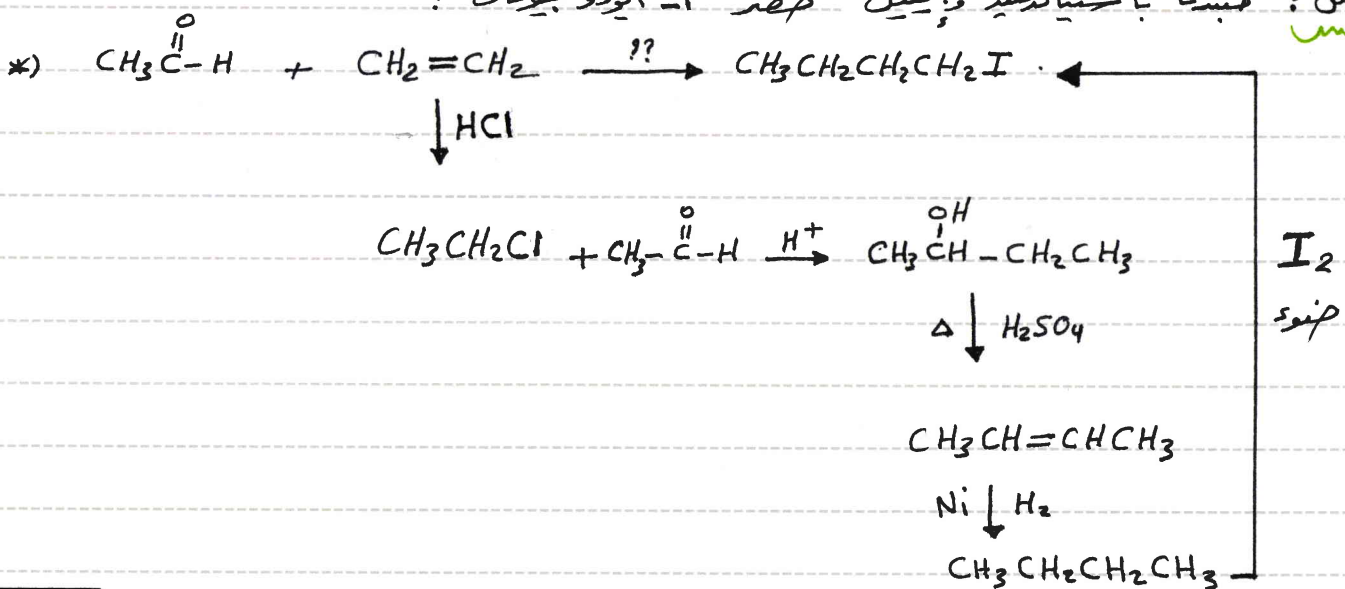 *) CH₃C(=O)-H + CH₂=CH₂ ⟶?? CH₃CH₂CH₂CH₂I
↓ HCl
CH₃CH₂Cl + CH₃-C(=O)-H ⟶H⁺ CH₃CH(OH)-CH₂CH₃
I₂
ضوء
Δ ↓ H₂SO₄
CH₃CH=CHCH₃
Ni ↓ H₂
CH₃CH₂CH₂CH₃